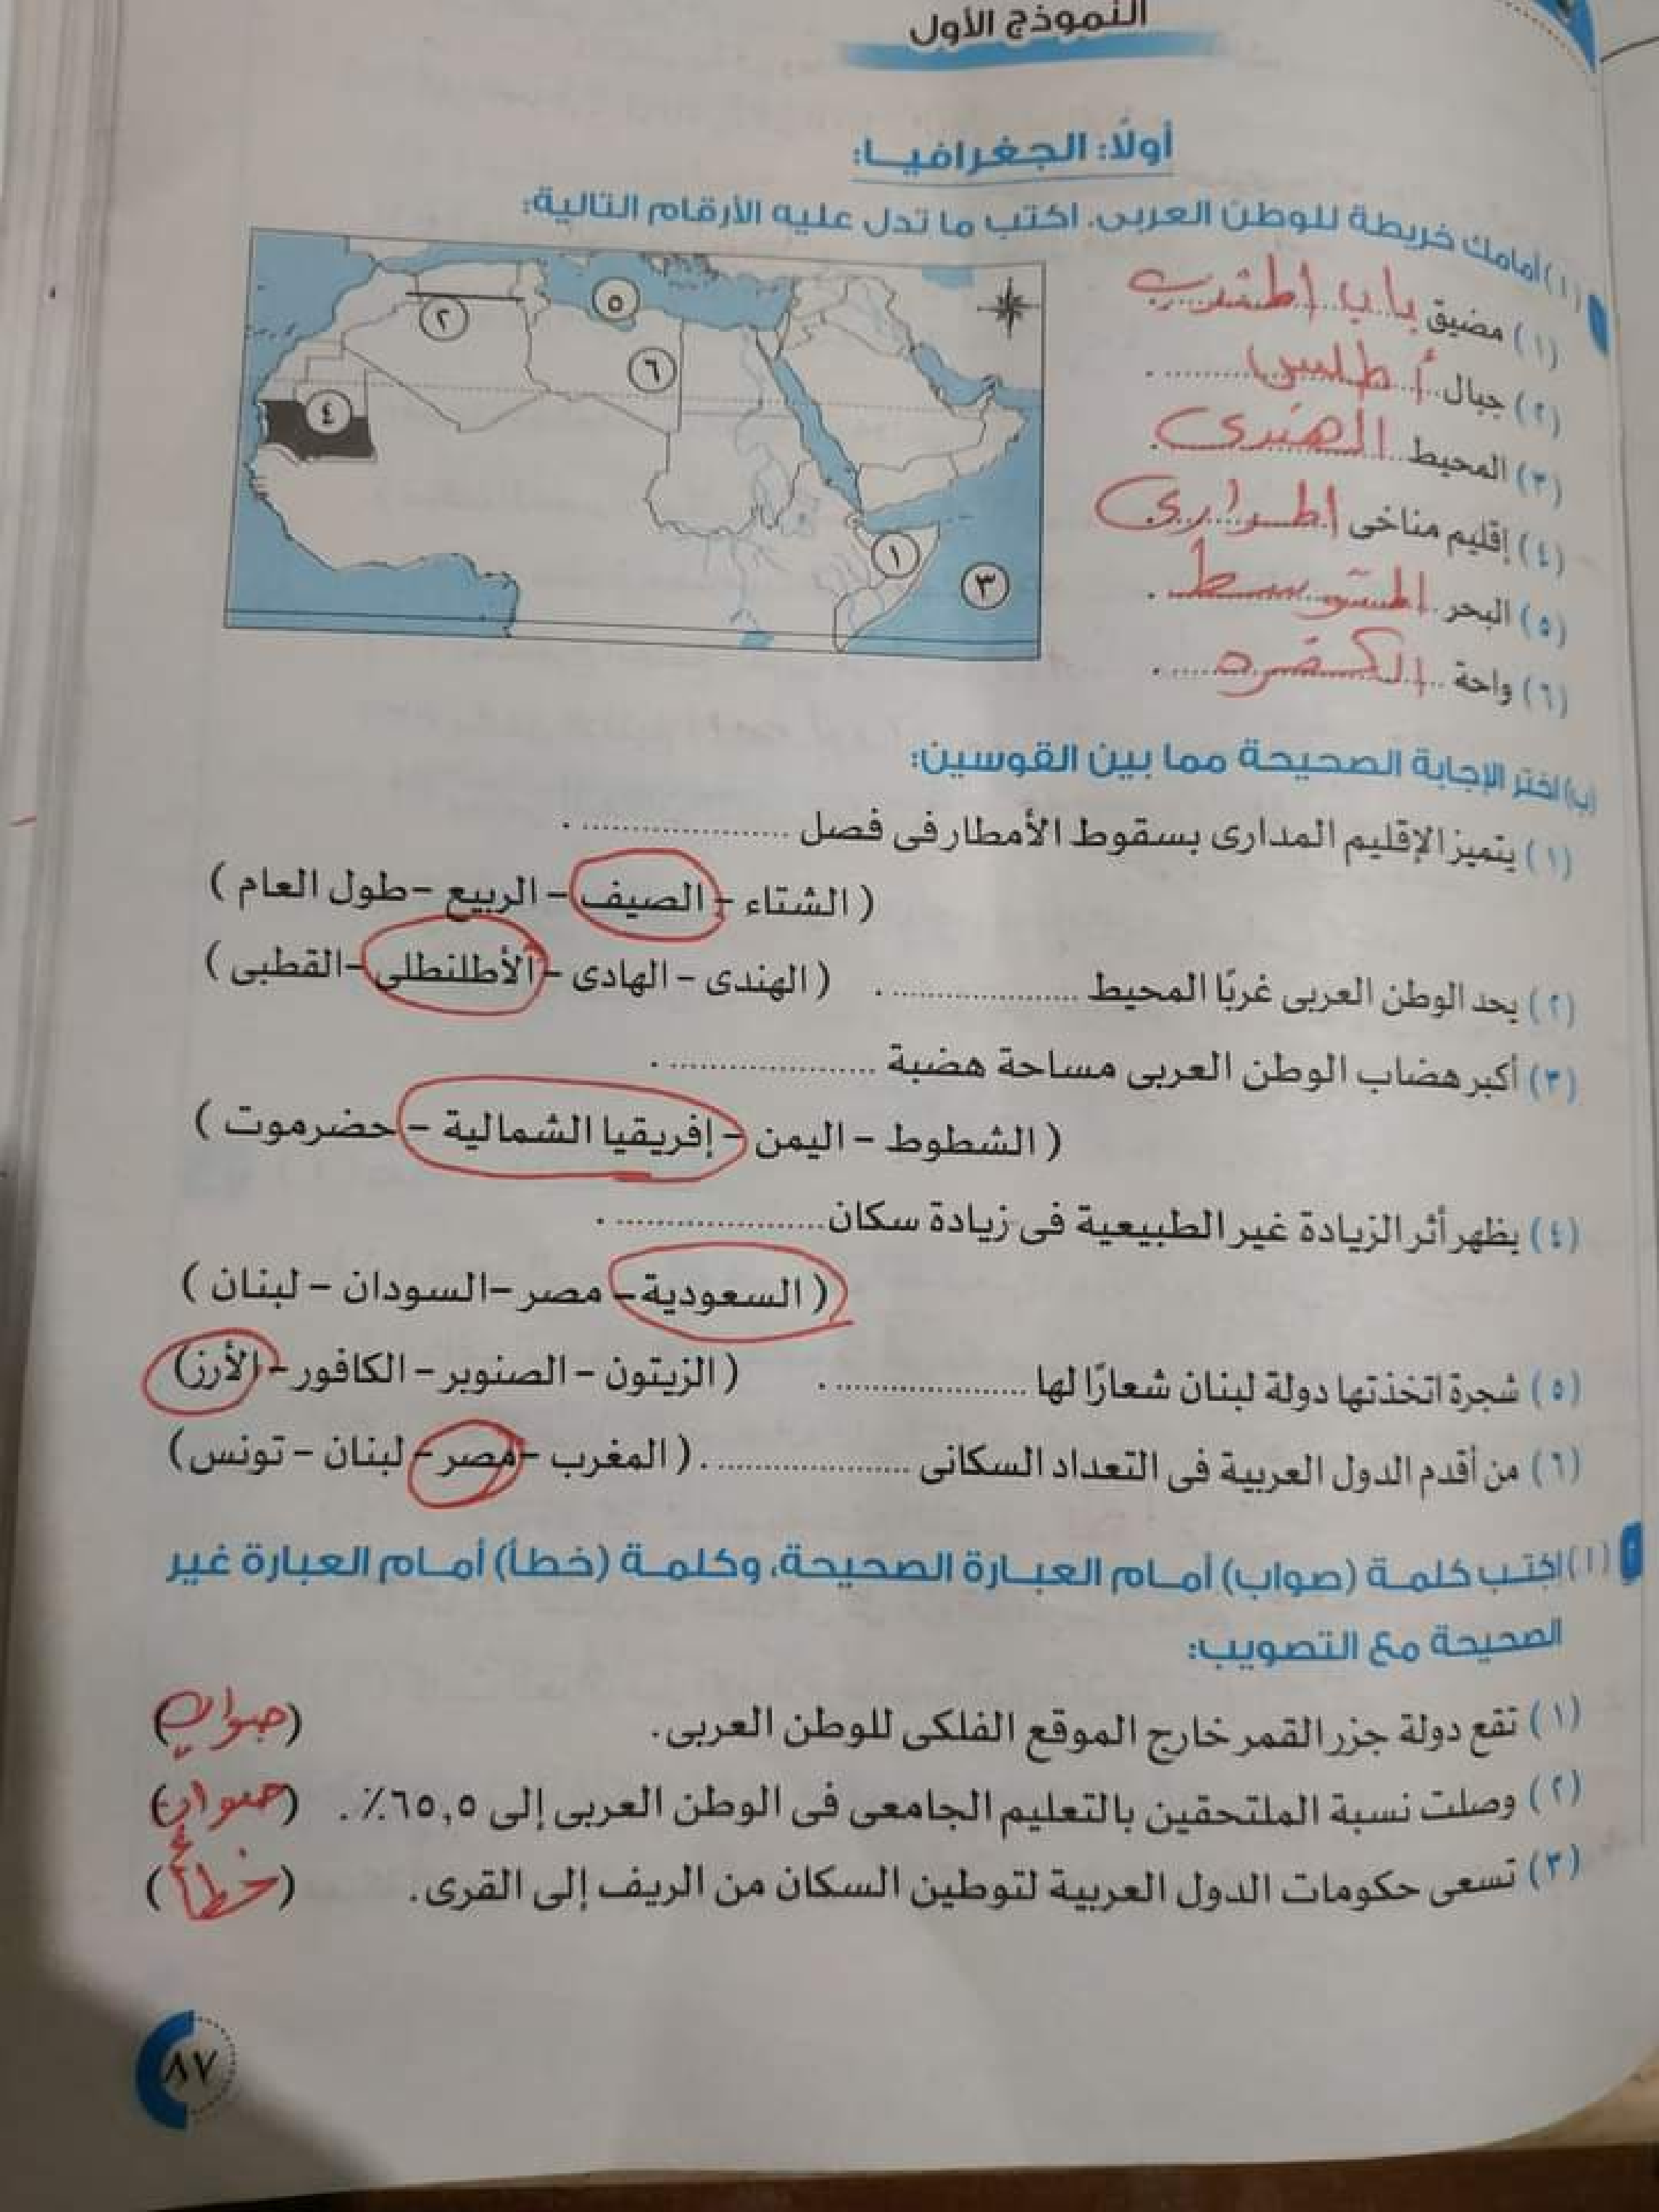 النموذج الأول
أولًا: الجغرافيا:
١ (أ) أمامك خريطة للوطن العربى. اكتب ما تدل عليه الأرقام التالية:
(١) مضيق باب المندب
(٢) جبال أطلس .
(٣) المحيط الهندى .
(٤) إقليم مناخى المدارى
(٥) البحر المتوسط .
(٦) واحة الكفره .
٥
٢
٦
٤
١
٣
(ب) اختر الإجابة الصحيحة مما بين القوسين:
(١) يتميز الإقليم المدارى بسقوط الأمطار فى فصل .................... .
( الشتاء - الصيف - الربيع - طول العام )
(٢) يحد الوطن العربى غربًا المحيط .................... . ( الهندى - الهادى - الأطلنطى - القطبى )
(٣) أكبر هضاب الوطن العربى مساحة هضبة .................... .
( الشطوط - اليمن - إفريقيا الشمالية - حضرموت )
(٤) يظهر أثر الزيادة غير الطبيعية فى زيادة سكان .................... .
( السعودية - مصر - السودان - لبنان )
(٥) شجرة اتخذتها دولة لبنان شعارًا لها .................... . ( الزيتون - الصنوبر - الكافور - الأرز)
(٦) من أقدم الدول العربية فى التعداد السكانى .................... . ( المغرب - مصر - لبنان - تونس)
٢ (أ) اكتب كلمة (صواب) أمام العبارة الصحيحة، وكلمة (خطأ) أمام العبارة غير
الصحيحة مع التصويب:
(١) تقع دولة جزر القمر خارج الموقع الفلكى للوطن العربى. (صواب)
(٢) وصلت نسبة الملتحقين بالتعليم الجامعى فى الوطن العربى إلى ٦٥,٥٪. (صواب)
(٣) تسعى حكومات الدول العربية لتوطين السكان من الريف إلى القرى. (خطأ)
٨٧